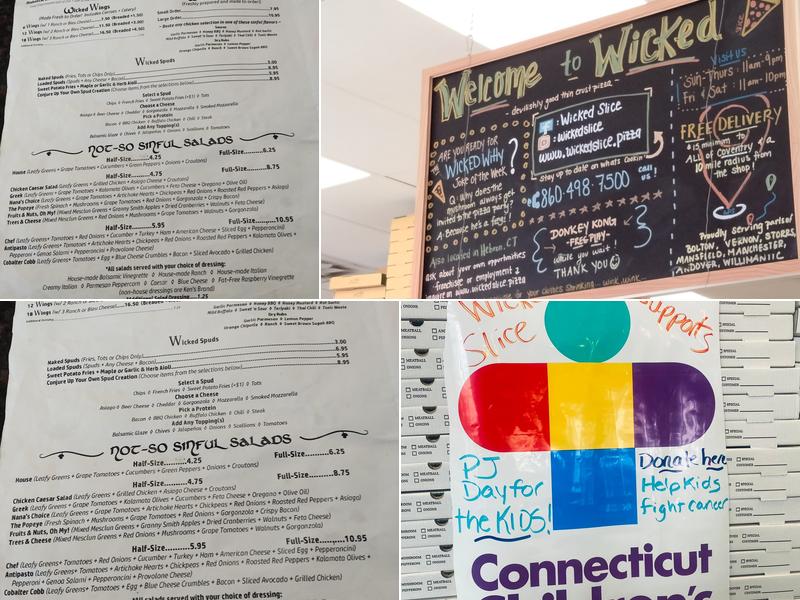 Wicked Wings
(Made Fresh to Order! Includes Carrots + Celery)
Small Order
7.95
Large Order
Wicked Spuds
Naked Spuds (Fries, Tots or Chips Only) 3.00
Loaded Spuds (Spuds + Any Cheese + Bacon) 6.95
Sweet Potato Fries + Maple or Garlic & Herb Aioli 5.95
Conjure Up Your Own Spud Creation (Choose items from the selections below) 8.95
Select a Spud
Chips ◊ French Fries ◊ Sweet Potato Fries (+$1) ◊ Tots
Choose a Cheese
Asiago ◊ Beer Cheese ◊ Cheddar ◊ Gorgonzola ◊ Mozzarella ◊ Smoked Mozzarella
Pick a Protein
Bacon ◊ BBQ Chicken ◊ Buffalo Chicken ◊ Chili ◊ Steak
Add Any Topping(s)
Balsamic Glaze ◊ Chives ◊ Jalapeños ◊ Onions ◊ Scallions ◊ Tomatoes
NOT-SO SINFUL SALADS
Half-Size..........4.25 Full-Size..........6.25
House (Leafy Greens + Grape Tomatoes + Cucumbers + Green Peppers + Onions + Croutons)
Half-Size..........4.75 Full-Size..........8.75
Chicken Caesar Salad (Leafy Greens + Grilled Chicken + Asiago Cheese + Croutons)
Greek (Leafy Greens + Grape Tomatoes + Kalamata Olives + Cucumbers + Feta Cheese + Oregano + Olive Oil)
Nana's Choice (Leafy Greens + Grape Tomatoes + Artichoke Hearts + Chickpeas + Red Onions + Roasted Red Peppers + Asiago)
The Popeye (Fresh Spinach + Mushrooms + Grape Tomatoes + Red Onions + Gorgonzola + Crispy Bacon)
Fruits & Nuts, Oh My! (Mixed Mesclun Greens + Granny Smith Apples + Dried Cranberries + Walnuts + Feta Cheese)
Trees & Cheese (Mixed Mesclun Greens + Red Onions + Mushrooms + Grape Tomatoes + Walnuts + Gorgonzola)
Half-Size..........5.95 Full-Size..........10.95
Chef (Leafy Greens + Tomatoes + Red Onions + Cucumber + Turkey + Ham + American Cheese + Sliced Egg + Pepperoncini)
Antipasto (Leafy Greens + Tomatoes + Artichoke Hearts + Chickpeas + Red Onions + Roasted Red Peppers + Kalamata Olives +
Pepperoni + Genoa Salami + Pepperoncini + Provolone Cheese)
Cobalter Cobb (Leafy Greens + Tomatoes + Egg + Blue Cheese Crumbles + Bacon + Sliced Avocado + Grilled Chicken)
*All salads served with your choice of dressing:
House-made Balsamic Vinegrette ◊ House-made Ranch ◊ House-made Italian
Creamy Italian ◊ Parmesan Peppercorn ◊ Caesar ◊ Blue Cheese ◊ Fat-Free Raspberry Vinegrette
(non-house dressings are Ken's Brand)
Welcome to Wicked
devilishly good thin crust pizza
: Wicked Slice
: wickedslice
www.wickedslice.pizza
Stay up to date on what's Cookin
860-498-7500
call us!
ARE YOU READY FOR
WICKED WITTY
Joke of the Week
?
Q: why does the
mushroom always get
invited to the pizza party?
A: Because he's a fungi!
Also located in Hebron, CT
ask about your own opportunities
- franchise or employment @
inquire at www.wickedslice.pizza
DONKEY KONG
- FREE PLAY -
while you wait!
THANK YOU
Visit us
Sun-Thurs: 11am-9pm
Fri & Sat: 11am-10pm
FREE DELIVERY
$15 minimum to
ALL of coventry & a
10 mile radius from
the shop!
Proudly serving parts of
BOLTON, VERNON, STORRS,
MANSFIELD, MANCHESTER,
ANDOVER, WILLIMANTIC
18 Wings (w/ 3 Ranch or Bleu Cheese) 16.50
Garlic Parmesan ◊ Lemon Pepper
Orange Chipotle ◊ Ranch ◊ Sweet Brown Sugar BBQ
Wicked Spuds
Naked Spuds (Fries, Tots or Chips Only) 3.00
Loaded Spuds (Spuds + Any Cheese + Bacon) 6.95
Sweet Potato Fries + Maple or Garlic & Herb Aioli 5.95
Conjure Up Your Own Spud Creation (Choose items from the selections below) 8.95
Select a Spud
Chips ◊ French Fries ◊ Sweet Potato Fries (+$1) ◊ Tots
Choose a Cheese
Asiago ◊ Beer Cheese ◊ Cheddar ◊ Gorgonzola ◊ Mozzarella ◊ Smoked Mozzarella
Pick a Protein
Bacon ◊ BBQ Chicken ◊ Buffalo Chicken ◊ Chili ◊ Steak
Add Any Topping(s)
Balsamic Glaze ◊ Chives ◊ Jalapeños ◊ Onions ◊ Scallions ◊ Tomatoes
NOT-SO SINFUL SALADS
Half-Size..........4.25 Full-Size..........6.25
House (Leafy Greens + Grape Tomatoes + Cucumbers + Green Peppers + Onions + Croutons)
Half-Size..........4.75 Full-Size..........8.75
Chicken Caesar Salad (Leafy Greens + Grilled Chicken + Asiago Cheese + Croutons)
Greek (Leafy Greens + Grape Tomatoes + Kalamata Olives + Cucumbers + Feta Cheese + Oregano + Olive Oil)
Nana's Choice (Leafy Greens + Grape Tomatoes + Artichoke Hearts + Chickpeas + Red Onions + Roasted Red Peppers + Asiago)
The Popeye (Fresh Spinach + Mushrooms + Grape Tomatoes + Red Onions + Gorgonzola + Crispy Bacon)
Fruits & Nuts, Oh My! (Mixed Mesclun Greens + Granny Smith Apples + Dried Cranberries + Walnuts + Feta Cheese)
Trees & Cheese (Mixed Mesclun Greens + Red Onions + Mushrooms + Grape Tomatoes + Walnuts + Gorgonzola)
Half-Size..........5.95 Full-Size..........10.95
Chef (Leafy Greens + Tomatoes + Red Onions + Cucumber + Turkey + Ham + American Cheese + Sliced Egg + Pepperoncini)
Antipasto (Leafy Greens + Tomatoes + Artichoke Hearts + Chickpeas + Red Onions + Roasted Red Peppers + Kalamata Olives +
Pepperoni + Genoa Salami + Pepperoncini + Provolone Cheese)
Cobalter Cobb (Leafy Greens + Tomatoes + Egg + Blue Cheese Crumbles + Bacon + Sliced Avocado + Grilled Chicken)
*All salads served with your choice of dressing:
Wicked
Slice
Supports
PJ
Day for
the KIDS!
Donate here
Help Kids
fight cancer
Connecticut
Children's